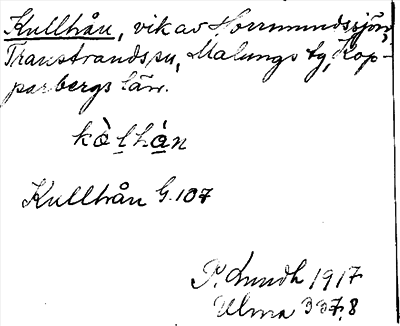 Kullhån, vik av Horrmundssjön,
Transtrands sn, Malungs tg, Kop-
parbergs län.
kò̱l̲há̱n
Kullhån G. 107
P. Lundh 1917
Ulma 337,8